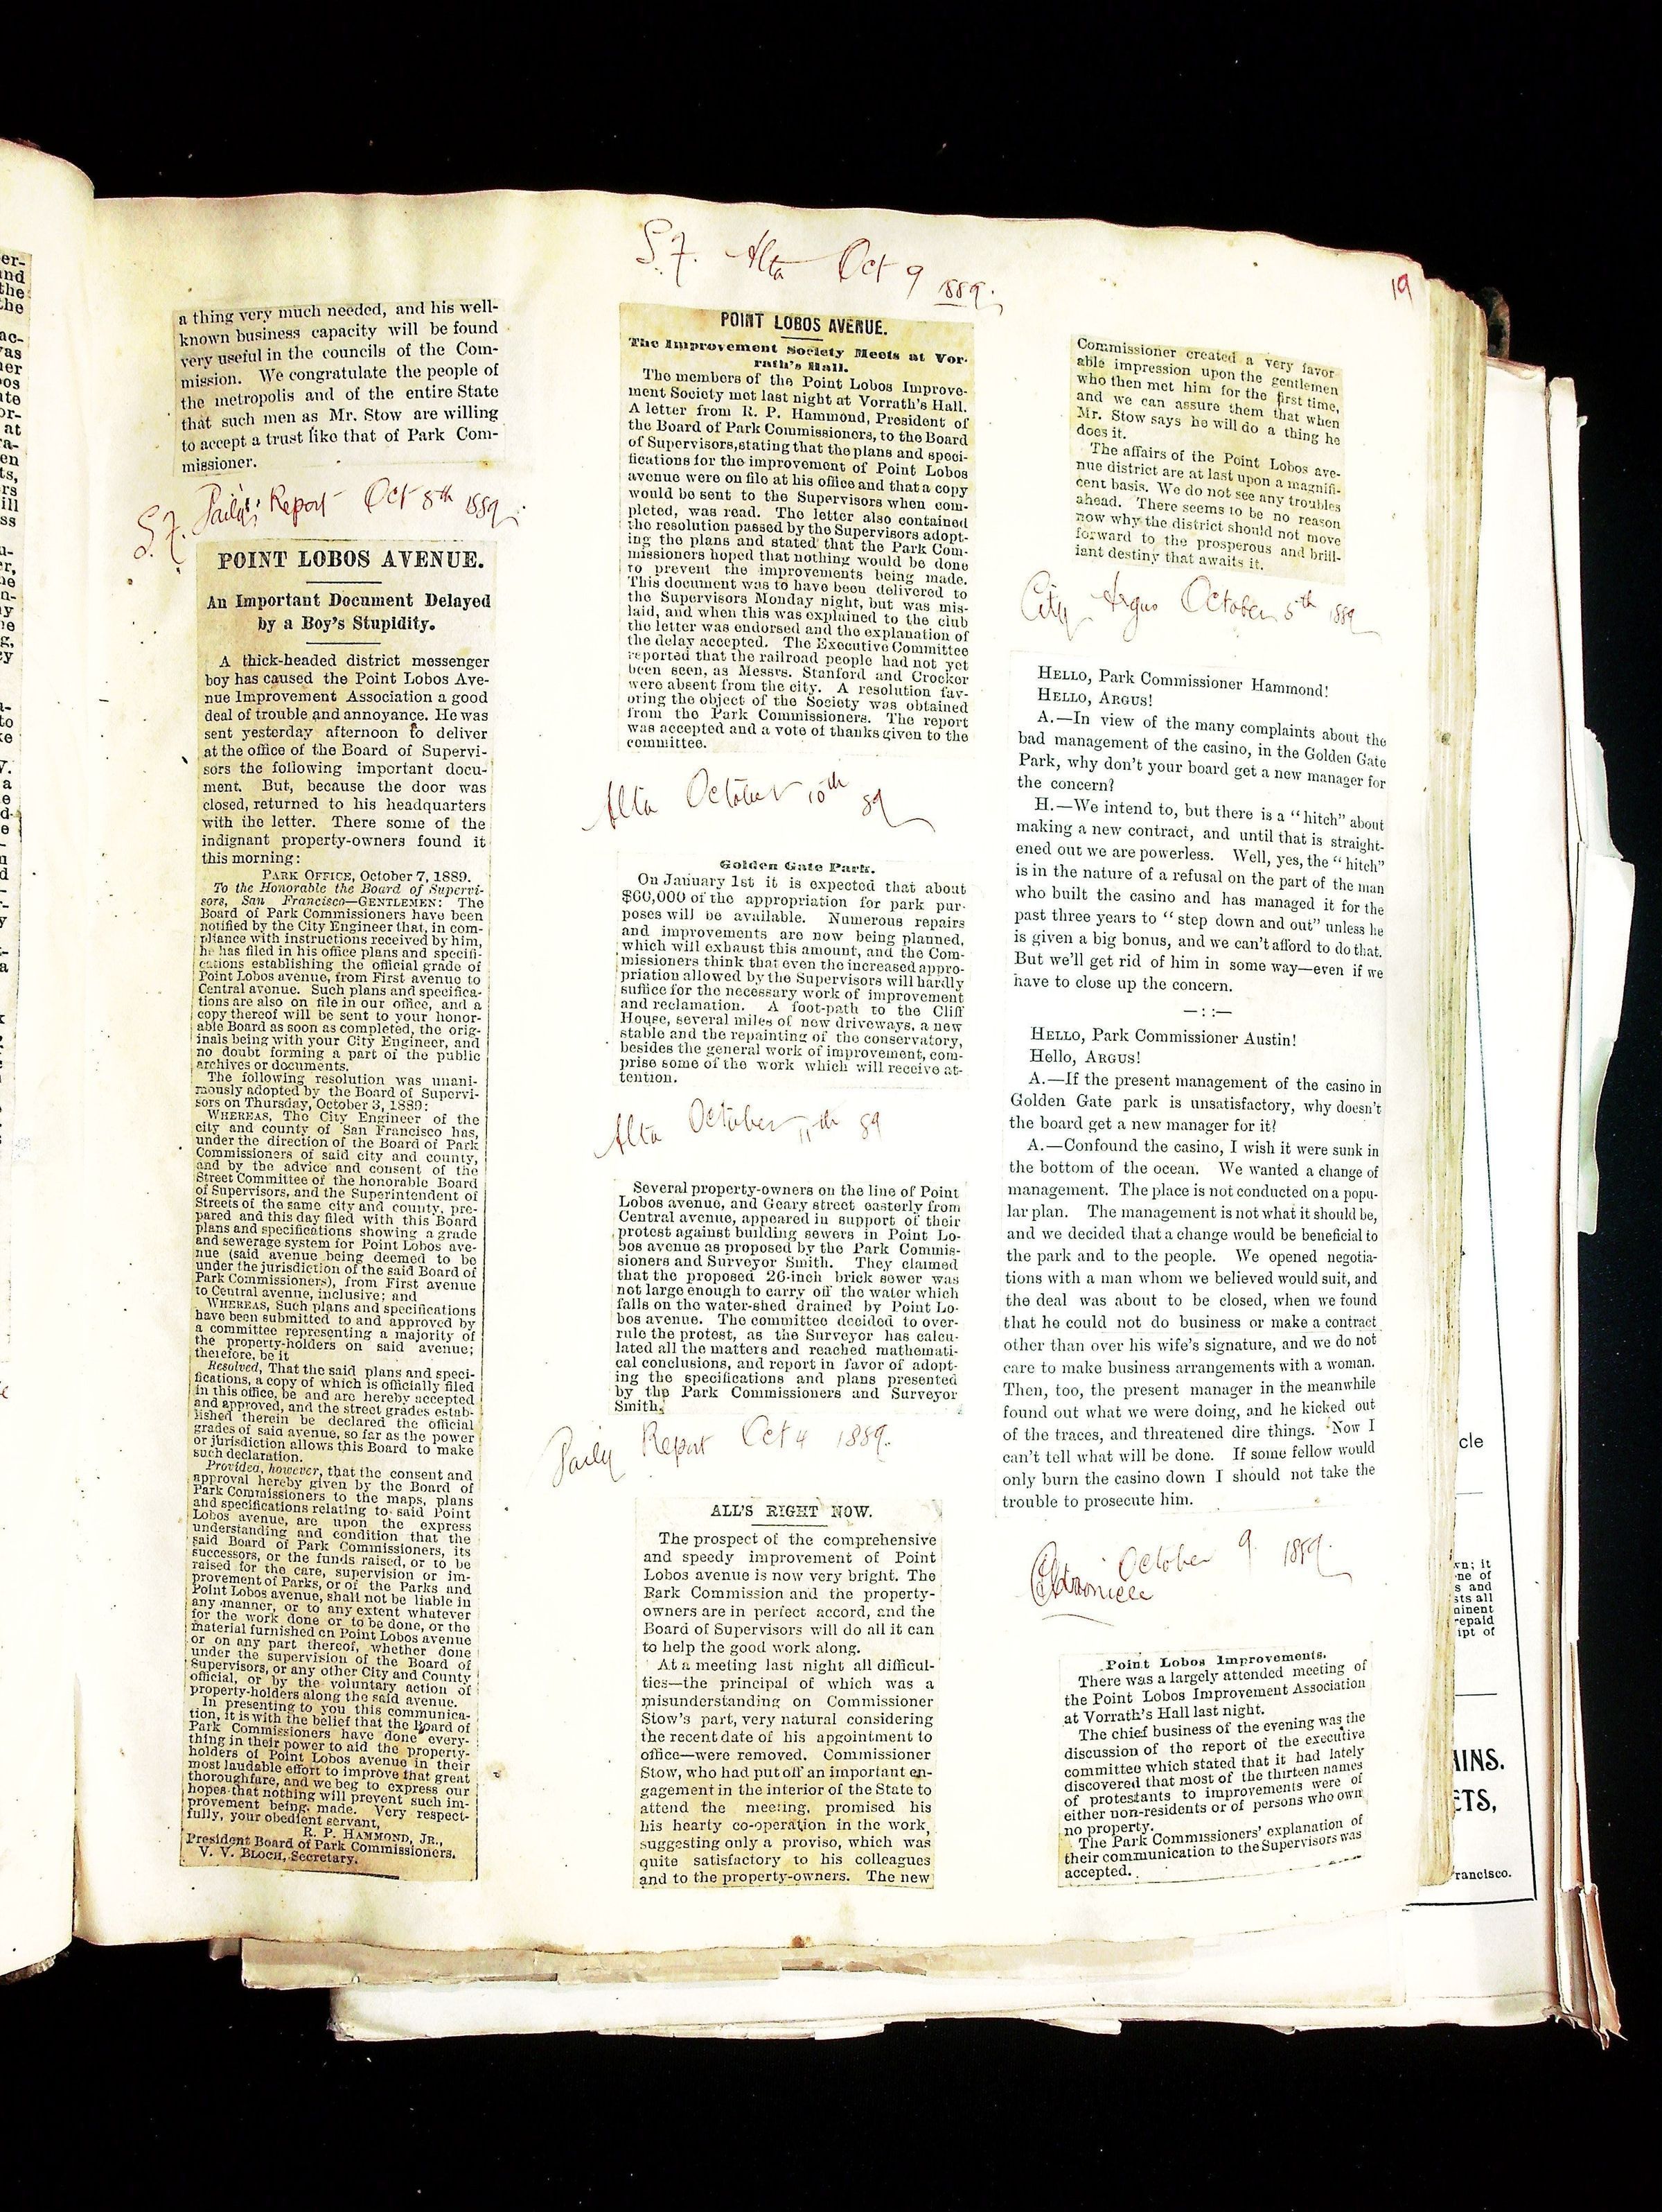 a thing very much needed, and his well-
known business capacity will be found
very useful in the councils of the Com-
mission. We congratulate the people of
the metropolis and of the entire State
that such men as Mr. Stow are willing
to accept a trust like that of Park Com-
missioner.
S.F. Daily Report Oct 8th 1889.
POINT LOBOS AVENUE.
An Important Document Delayed
by a Boy's Stupidity.
A thick-headed district messenger
boy has caused the Point Lobos Ave-
nue Improvement Association a good
deal of trouble and annoyance. He was
sent yesterday afternoon to deliver
at the office of the Board of Supervi-
sors the following important docu-
ment. But, because the door was
closed, returned to his headquarters
with the letter. There some of the
indignant property-owners found it
this morning:
PARK OFFICE, October 7, 1889.
To the Honorable the Board of Supervi-
sors, San Francisco—GENTLEMEN: The
Board of Park Commissioners have been
notified by the City Engineer that, in com-
pliance with instructions received by him,
he has filed in his office plans and specifi-
cations establishing the official grade of
Point Lobos avenue, from First avenue to
Central avenue. Such plans and specifica-
tions are also on file in our office, and a
copy thereof will be sent to your honor-
able Board as soon as completed, the orig-
inals being with your City Engineer, and
no doubt forming a part of the public
archives or documents.
The following resolution was unani-
mously adopted by the Board of Supervi-
sors on Thursday, October 3, 1889:
WHEREAS, The City Engineer of the
city and county of San Francisco has,
under the direction of the Board of Park
Commissioners of said city and county,
and by the advice and consent of the
Street Committee of the honorable Board
of Supervisors, and the Superintendent of
Streets of the same city and county, pre-
pared and this day filed with this Board
plans and specifications showing a grade
and sewerage system for Point Lobos ave-
nue (said avenue being deemed to be
under the jurisdiction of the said Board of
Park Commissioners), from First avenue
to Central avenue, inclusive; and
WHEREAS, Such plans and specifications
have been submitted to and approved by
a committee representing a majority of
the property-holders on said avenue;
therefore, be it
Resolved, That the said plans and speci-
fications, a copy of which is officially filed
in this office, be and are hereby accepted
and approved, and the street grades estab-
lished therein be declared the official
grades of said avenue, so far as the power
or jurisdiction allows this Board to make
such declaration.
Provided, however, that the consent and
approval hereby given by the Board of
Park Commissioners to the maps, plans
and specifications relating to said Point
Lobos avenue, are upon the express
understanding and condition that the
said Board of Park Commissioners, its
successors, or the funds raised, or to be
raised for the care, supervision or im-
provement of Parks, or of the Parks and
Point Lobos avenue, shall not be liable in
any manner, or to any extent whatever
for the work done or to be done, or the
material furnished on Point Lobos avenue
or on any part thereof, whether done
under the supervision of the Board of
Supervisors, or any other City and County
official, or by the voluntary action of
property-holders along the said avenue.
In presenting to you this communica-
tion, it is with the belief that the Board of
Park Commissioners have done every-
thing in their power to aid the property-
holders of Point Lobos avenue in their
most laudable effort to improve that great
thoroughfare, and we beg to express our
hopes that nothing will prevent such im-
provement being made. Very respect-
fully, your obedient servant,
R. P. HAMMOND, JR.,
President Board of Park Commissioners.
V. V. BLOCH, Secretary.
S.F. Alta Oct 9 1889.
POINT LOBOS AVENUE.
The Improvement Society Meets at Vor-
rath's Hall.
The members of the Point Lobos Improve-
ment Society met last night at Vorrath's Hall.
A letter from R. P. Hammond, President of
the Board of Park Commissioners, to the Board
of Supervisors, stating that the plans and speci-
fications for the improvement of Point Lobos
avenue were on file at his office and that a copy
would be sent to the Supervisors when com-
pleted, was read. The letter also contained
the resolution passed by the Supervisors adopt-
ing the plans and stated that the Park Com-
missioners hoped that nothing would be done
to prevent the improvements being made.
This document was to have been delivered to
the Supervisors Monday night, but was mis-
laid, and when this was explained to the club
the letter was endorsed and the explanation of
the delay accepted. The Executive Committee
reported that the railroad people had not yet
been seen, as Messrs. Stanford and Crocker
were absent from the city. A resolution fav-
oring the object of the Society was obtained
from the Park Commissioners. The report
was accepted and a vote of thanks given to the
committee.
Alta October 10th 89
Golden Gate Park.
On January 1st it is expected that about
$60,000 of the appropriation for park pur-
poses will be available. Numerous repairs
and improvements are now being planned,
which will exhaust this amount, and the Com-
missioners think that even the increased appro-
priation allowed by the Supervisors will hardly
suffice for the necessary work of improvement
and reclamation. A foot-path to the Cliff
House, several miles of new driveways, a new
stable and the repainting of the conservatory,
besides the general work of improvement, com-
prise some of the work which will receive at-
tention.
Alta October 11th 89
Several property-owners on the line of Point
Lobos avenue, and Geary street easterly from
Central avenue, appeared in support of their
protest against building sewers in Point Lo-
bos avenue as proposed by the Park Commis-
sioners and Surveyor Smith. They claimed
that the proposed 26-inch brick sewer was
not large enough to carry off the water which
falls on the water-shed drained by Point Lo-
bos avenue. The committee decided to over-
rule the protest, as the Surveyor has calcu-
lated all the matters and reached mathemati-
cal conclusions, and report in favor of adopt-
ing the specifications and plans presented
by the Park Commissioners and Surveyor
Smith.
Daily Report Oct 4 1889.
ALL'S RIGHT NOW.
The prospect of the comprehensive
and speedy improvement of Point
Lobos avenue is now very bright. The
Park Commission and the property-
owners are in perfect accord, and the
Board of Supervisors will do all it can
to help the good work along.
At a meeting last night all difficul-
ties—the principal of which was a
misunderstanding on Commissioner
Stow's part, very natural considering
the recent date of his appointment to
office—were removed. Commissioner
Stow, who had put off an important en-
gagement in the interior of the State to
attend the meeting, promised his
his hearty co-operation in the work,
suggesting only a proviso, which was
quite satisfactory to his colleagues
and to the property-owners. The new
19
Commissioner created a very favor
able impression upon the gentlemen
who then met him for the first time,
and we can assure them that when
Mr. Stow says he will do a thing he
does it.
The affairs of the Point Lobos ave-
nue district are at last upon a magnifi-
cent basis. We do not see any troubles
ahead. There seems to be no reason
now why the district should not move
forward to the prosperous and brill-
iant destiny that awaits it.
City Argus October 5th 1889
HELLO, Park Commissioner Hammond!
HELLO, ARGUS!
A.—In view of the many complaints about the
bad management of the casino, in the Golden Gate
Park, why don't your board get a new manager for
the concern?
H.—We intend to, but there is a "hitch" about
making a new contract, and until that is straight-
ened out we are powerless. Well, yes, the "hitch"
is in the nature of a refusal on the part of the man
who built the casino and has managed it for the
past three years to "step down and out" unless he
is given a big bonus, and we can't afford to do that.
But we'll get rid of him in some way—even if we
have to close up the concern.
—::—
HELLO, Park Commissioner Austin!
Hello, ARGUS!
A.—If the present management of the casino in
Golden Gate park is unsatisfactory, why doesn't
the board get a new manager for it?
A.—Confound the casino, I wish it were sunk in
the bottom of the ocean. We wanted a change of
management. The place is not conducted on a popu-
lar plan. The management is not what it should be,
and we decided that a change would be beneficial to
the park and to the people. We opened negotia-
tions with a man whom we believed would suit, and
the deal was about to be closed, when we found
that he could not do business or make a contract
other than over his wife's signature, and we do not
care to make business arrangements with a woman.
Then, too, the present manager in the meanwhile
found out what we were doing, and he kicked out
of the traces, and threatened dire things. Now I
can't tell what will be done. If some fellow would
only burn the casino down I should not take the
trouble to prosecute him.
Chronicle October 9. 1889.
Point Lobos Improvements.
There was a largely attended meeting of
the Point Lobos Improvement Association
at Vorrath's Hall last night.
The chief business of the evening was the
discussion of the report of the executive
committee which stated that it had lately
discovered that most of the thirteen names
of protestants to improvements were of
either non-residents or of persons who own
no property.
The Park Commissioners' explanation of
their communication to the Supervisors was
accepted.